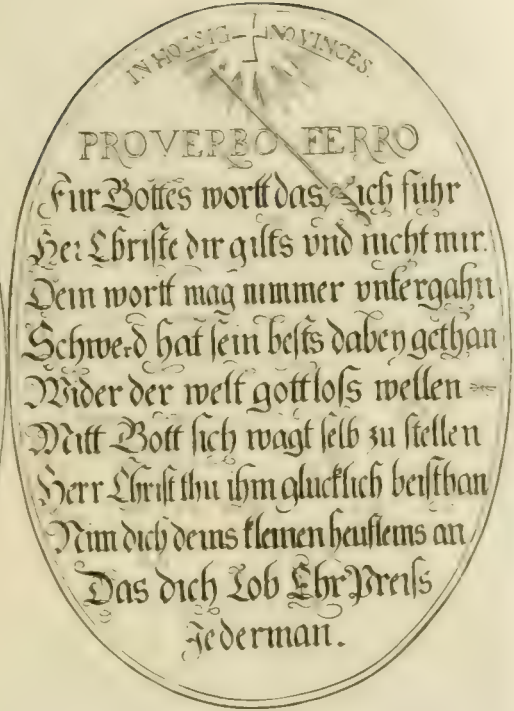 IN HOC SIG- NO VINCES.
PRO VERBO FERRO
Fur Gottes wortt das ich fuhr
Her Christe dir gilts vnd nicht mir.
Dein wortt mag nimmer vntergahn
Schwerd hat sein bests dabey gethan
Wider der welt gottloss wellen
Mitt Gott sich wagt selb zu stellen
Herr Christ thu ihm glucklich beisthan
Nim dich deins kleinen heuflems an
Das dich Lob Ehr Preiss
Jederman.